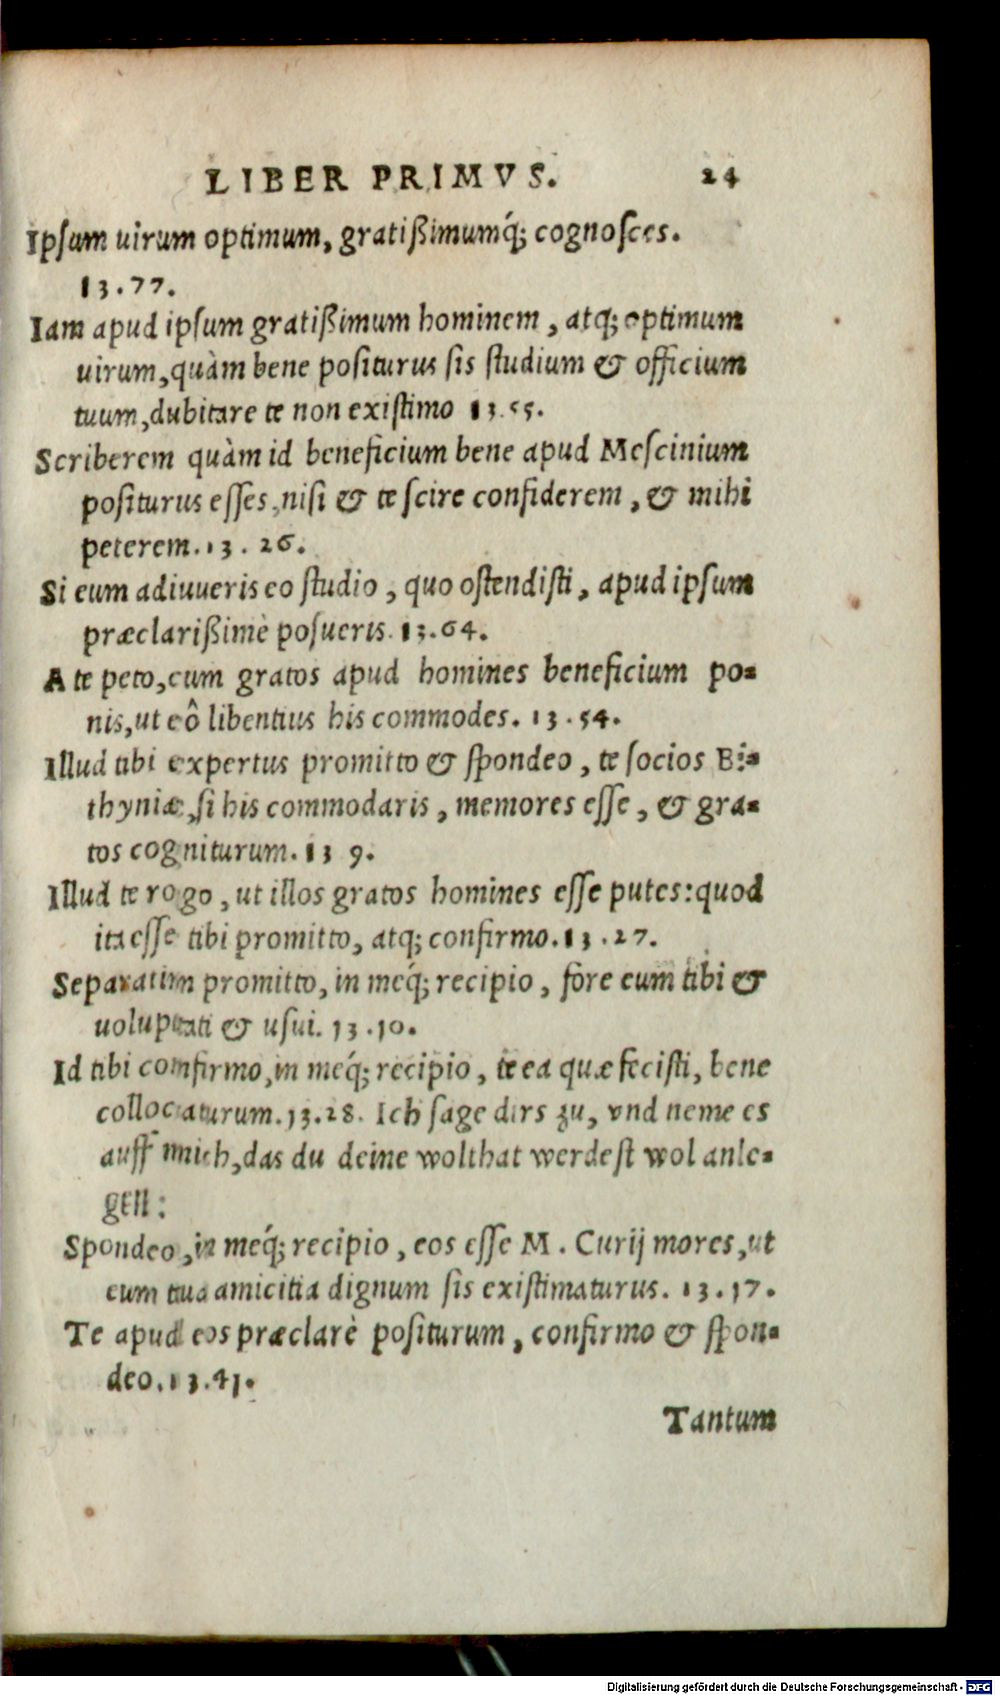 LIBER PRIMVS. 24
Ipsum uirum optimum, gratißimumq́; cognosces.
13.77.
Iam apud ipsum gratißimum hominem, atq; optimum
uirum, quàm bene positurus sis studium & officium
tuum, dubitare te non existimo 13.55.
Scriberem quàm id beneficium bene apud Mescinium
positurus esses, nisi & te scire confiderem, & mihi
peterem. 13. 26.
Si eum adiuueris eo studio, quo ostendisti, apud ipsum
præclarißimè posueris. 13.64.
A te peto, cum gratos apud homines beneficium po=
nis, ut eô libentius his commodes. 13.54.
Illud tibi expertus promitto & spondeo, te socios Bi=
thyniæ, si his commodaris, memores esse, & gra=
tos cogniturum. 13 9.
Illud te rogo, ut illos gratos homines esse putes: quod
ita esse tibi promitto, atq; confirmo. 13.27.
Separatim promitto, in meq́; recipio, fore eum tibi &
uoluptati & usui. 13.10.
Id tibi confirmo, in meq́; recipio, te ea quæ fecisti, bene
collocaturum. 13.28. Ich sage dirs zu, vnd neme es
auff mich, das du deine wolthat werdest wol anle=
gen:
Spondeo, in meq́; recipio, eos esse M. Curij mores, ut
eum tua amicitia dignum sis existimaturus. 13.17.
Te apud eos præclarè positurum, confirmo & spon=
deo. 13.41.
Tantum
Digitalisierung gefördert durch die Deutsche Forschungsgemeinschaft - DFG